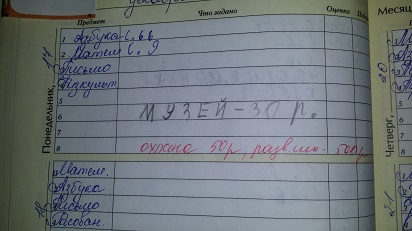 Предмет Что задано Оценка
Месяц
Понедельник, 14
1 Азбука с. 66
2 Матем с. 9
Письмо
Физкульт
5
6 МУЗЕЙ - 30 р.
7
8 охрана 50р, разв. шк. 500р
Матем.
Азбука
Письмо
Рисован.
Четверг,
20
21